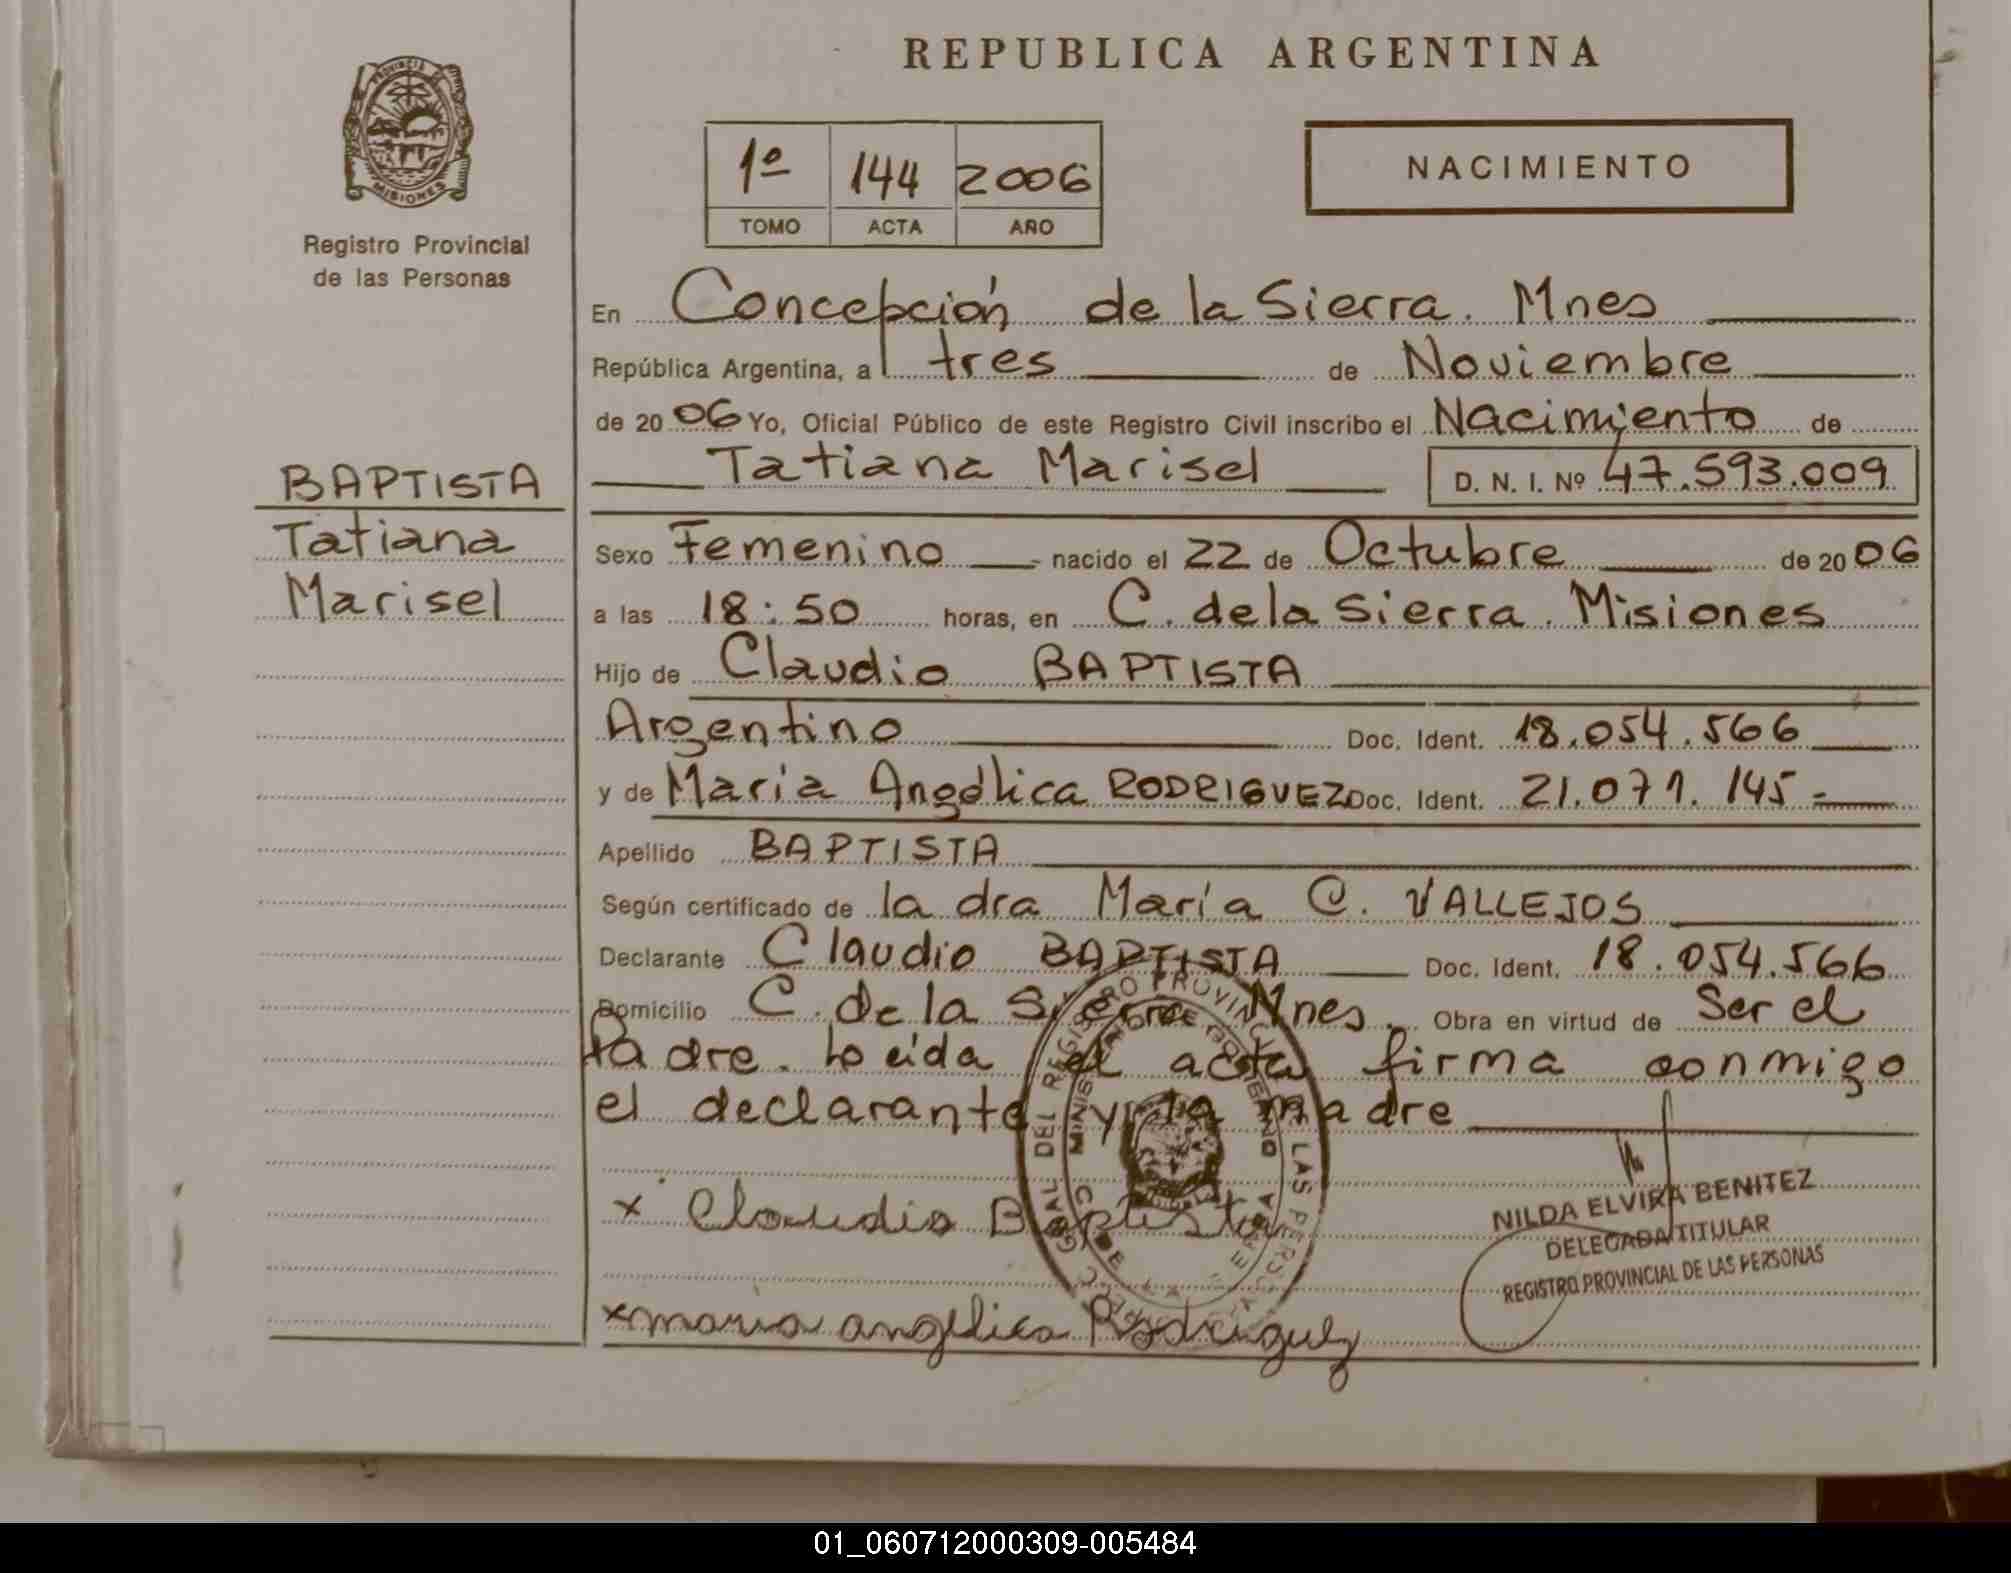 REPUBLICA ARGENTINA
PROVINCIA DE
MISIONES
Registro Provincial
de las Personas
1º 144 2006
TOMO ACTA AÑO
NACIMIENTO
En Concepción de la Sierra. Mnes
República Argentina, a tres de Noviembre
de 2006 Yo, Oficial Público de este Registro Civil inscribo el Nacimiento de
Tatiana Marisel D. N. I. Nº 47.593.009
BAPTISTA
Tatiana
Marisel
Sexo Femenino nacido el 22 de Octubre de 2006
a las 18:50 horas, en C. de la Sierra. Misiones
Hijo de Claudio BAPTISTA
Argentino Doc. Ident. 18.054.566
y de María Angélica RODRIGUEZ Doc. Ident. 21.071.145
Apellido BAPTISTA
Según certificado de la dra María C. VALLEJOS
Declarante Claudio BAPTISTA Doc. Ident. 18.054.566
Domicilio C. de la Sierra Mnes. Obra en virtud de Ser el
Padre. Leida el acta firma conmigo
el declarante y la madre
x Claudio Baptista
x maria angelica Rodriguez
NILDA ELVIRA BENITEZ
DELEGADA TITULAR
REGISTRO PROVINCIAL DE LAS PERSONAS
01_060712000309-005484